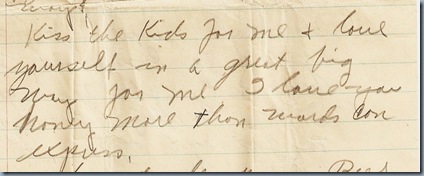 Kiss the Kids for me & love
yourself in a great big
way for me I love you
honey more than words can
express.